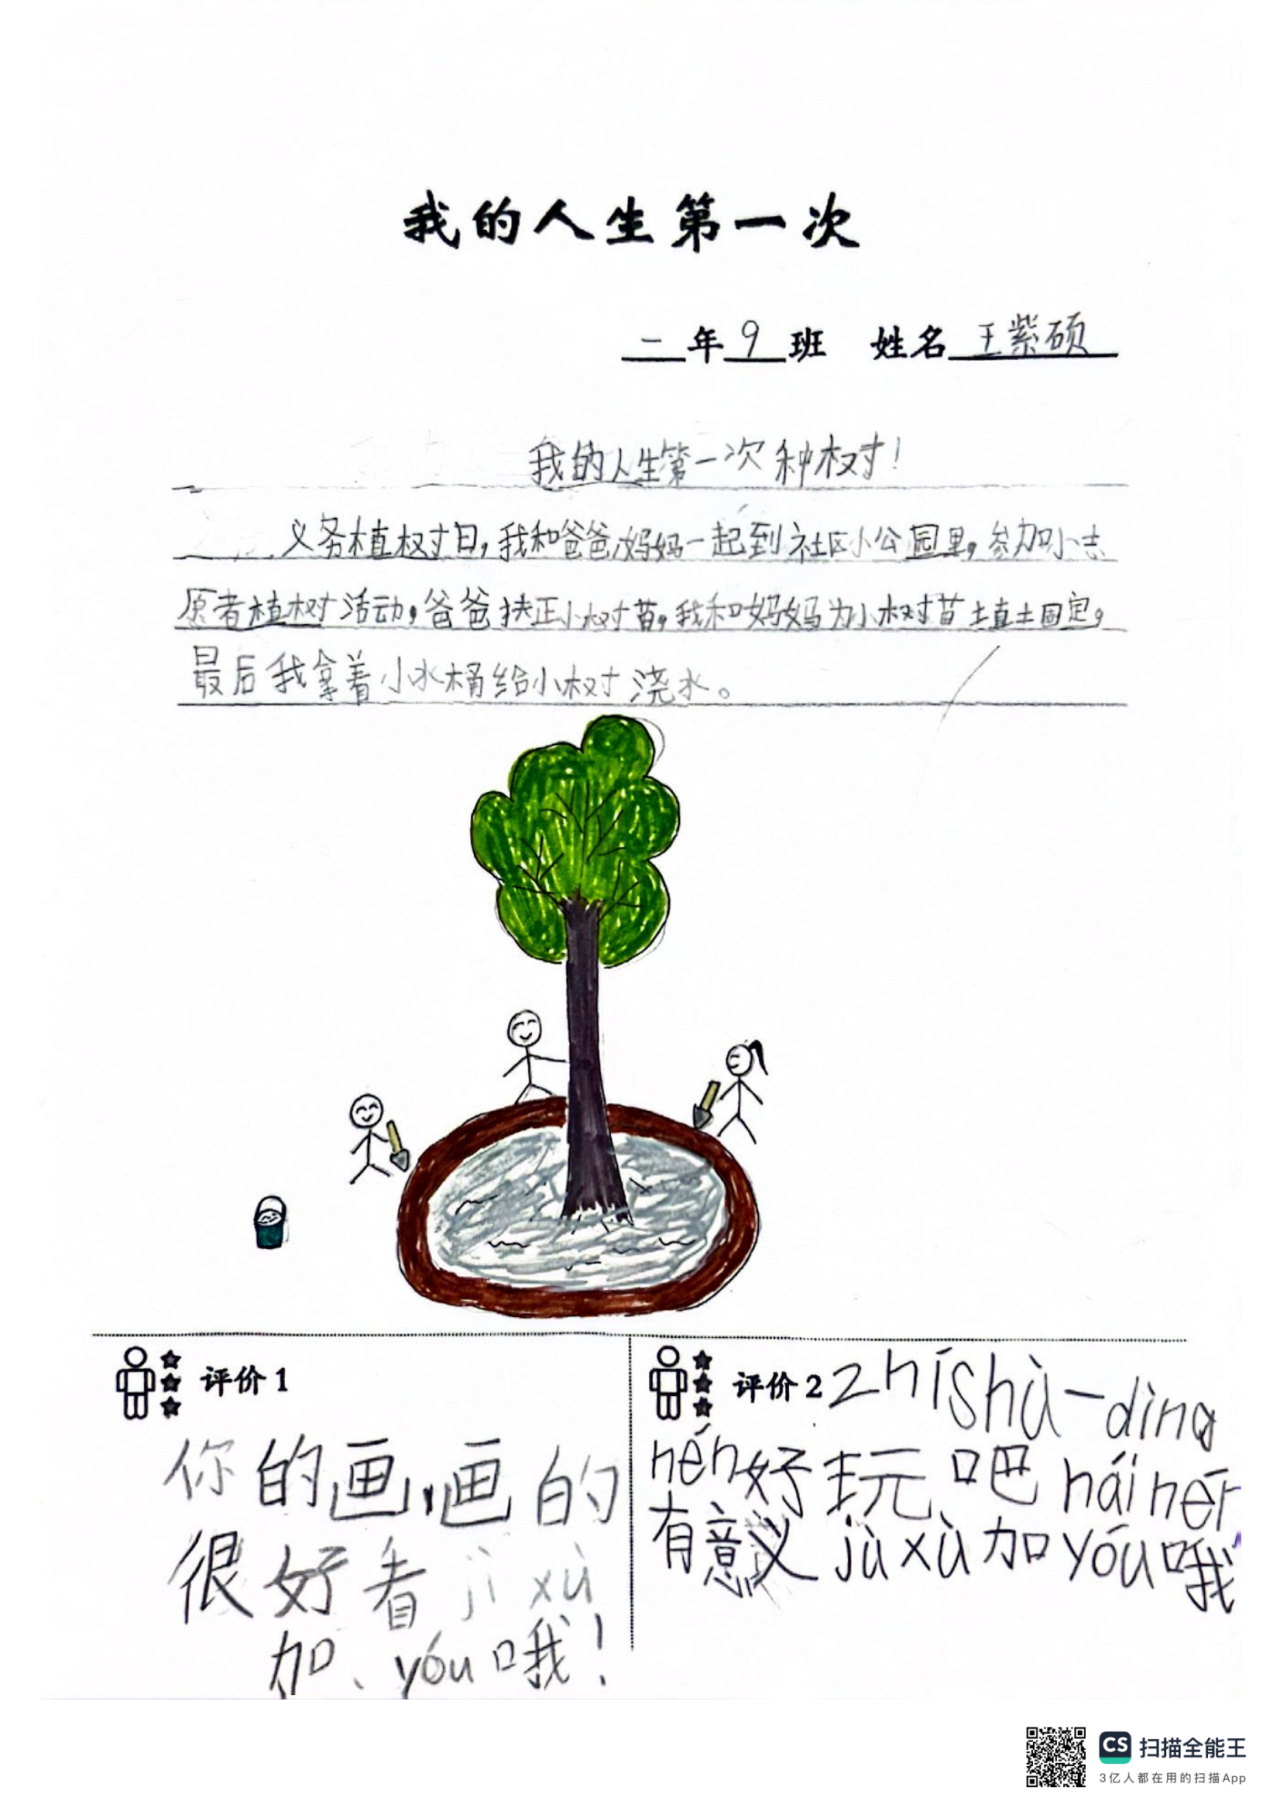 我的人生第一次
一年9班 姓名王紫硕
我的人生第一次种树!
义务植树日,我和爸爸妈妈一起到社区小公园里,参加小志
原者植树活动,爸爸扶正小树苗,我和妈妈为小树苗土直土固定,
最后我拿着小水桶给小树浇水。
评价1
你的画,画的
很好看jì xù
加、yóu哦!
评价2 zhíshù一dìng
hén好玩吧háihěr
有意义jùxù加yóu哦
CS 扫描全能王
3亿人都在用的扫描App